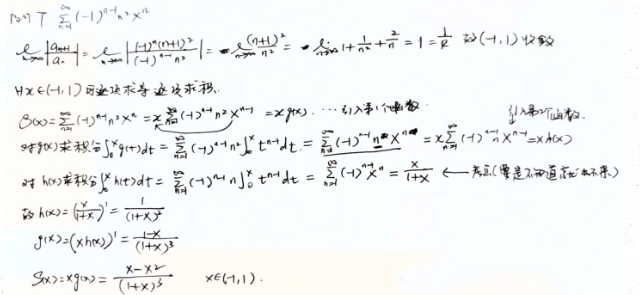 $\sum_{n=1}^{\infty}(-1)^{n-1}n^2x^n$
$\lim_{n\to\infty}\left|\frac{a_{n+1}}{a_n}\right|=\lim_{n\to\infty}\left|\frac{(-1)^n(n+1)^2}{(-1)^{n-1}n^2}\right|=\lim_{n\to\infty}\frac{(n+1)^2}{n^2}=\lim_{n\to\infty}1+\frac{1}{n^2}+\frac{2}{n}=1=\frac{1}{R}$ 故(-1,1)收敛
∀x∈(-1,1) 可逐项求导逐项求积.
$S(x)=\sum_{n=1}^{\infty}(-1)^{n-1}n^2x^n=x\sum_{n=1}^{\infty}(-1)^{n-1}n^2x^{n-1}=xg(x).$ …引入第1个函数. 引入第2个函数.
对g(x)求积分$\int_0^x g(t)dt=\sum_{n=1}^{\infty}(-1)^{n-1}n^2\int_0^x t^{n-1}dt=\sum_{n=1}^{\infty}(-1)^{n-1}nx^n=x\sum_{n=1}^{\infty}(-1)^{n-1}nx^{n-1}=xh(x)$
对h(x)求积分$\int_0^x h(t)dt=\sum_{n=1}^{\infty}(-1)^{n-1}n\int_0^x t^{n-1}dt=\sum_{n=1}^{\infty}(-1)^{n-1}x^n=\frac{x}{1+x}$ ← 考点(要是不知道
故 $h(x)=(\frac{x}{1+x})'=\frac{1}{(1+x)^2}$
$g(x)=(xh(x))'=\frac{1-x}{(1+x)^3}$
$S(x)=xg(x)=\frac{x-x^2}{(1+x)^3}$ x∈(-1,1).